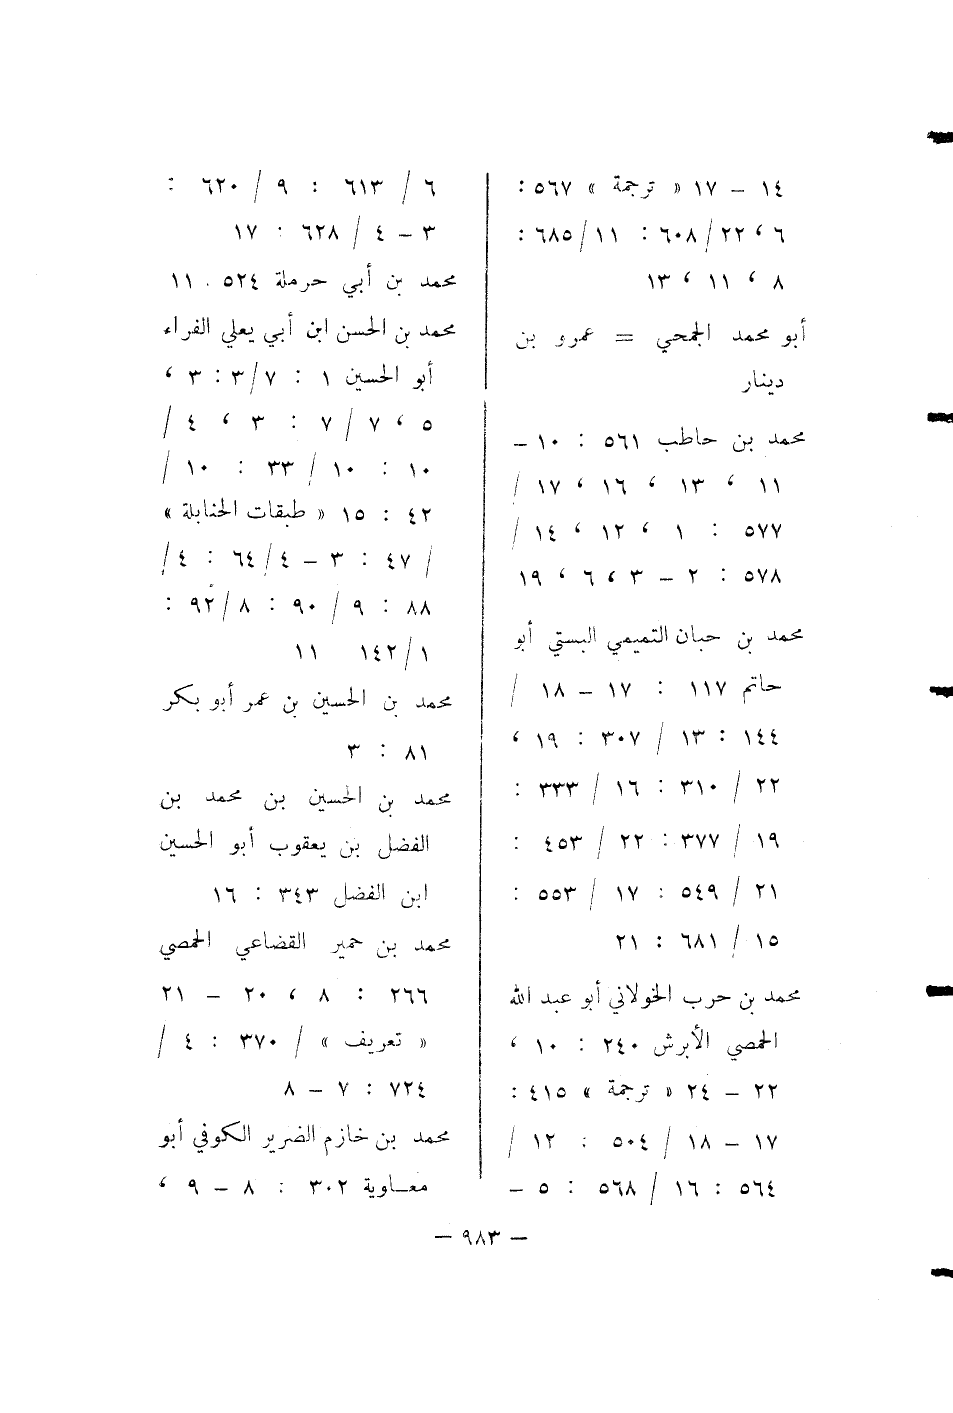 ١٤ – ١٧ « ترجمة » ٥٦٧ :
٦ ، ٢٢ / ٦٠٨ : ١١ / ٦٨٥ :
٨ ، ١١ ، ١٣
أبو محمد الجمحي = عمرو بن
دينار
محمد بن حاطب ٥٦١ : ١٠ –
١١ ، ١٣ ، ١٦ ، ١٧ /
٥٧٧ : ١ ، ١٢ ، ١٤ /
٥٧٨ : ٢ – ٣ ، ٦ ، ١٩
محمد بن حبان التميمي البستي أبو
حاتم ١١٧ : ١٧ – ١٨ /
١٤٤ : ١٣ / ٣٠٧ : ١٩ ،
٢٢ / ٣١٠ : ١٦ / ٣٣٣ :
١٩ / ٣٧٧ : ٢٢ / ٤٥٣ :
٢١ / ٥٤٩ : ١٧ / ٥٥٣ :
١٥ / ٦٨١ : ٢١
محمد بن حرب الخولاني أبو عبد الله
الحمصي الأبرش ٢٤٠ : ١٠ ،
٢٢ – ٢٤ « ترجمة » ٤١٥ :
١٧ – ١٨ / ٥٠٤ : ١٢ /
٥٦٤ : ١٦ / ٥٦٨ : ٥ –
٦ / ٦١٣ : ٩ / ٦٢٠ :
٣ – ٤ / ٦٢٨ : ١٧
محمد بن أبي حرملة ٥٢٤ . ١١
محمد بن الحسن ابن أبي يعلي الفراء
أبو الحسين ١ : ٣/٧ : ٣ ،
٥ ، ٧ / ٧ : ٣ ، ٤ /
١٠ : ١٠ / ٣٣ : ١٠ /
٤٢ : ١٥ « طبقات الحنابلة »
/ ٤٧ : ٣ – ٤ / ٦٤ : ٤ /
٨٨ : ٩ / ٩٠ : ٨ / ٩٢ :
١ / ١٤٢ ١١
محمد بن الحسين بن عمر أبو بكر
٨١ : ٣
محمد بن الحسين بن محمد بن
الفضل بن يعقوب أبو الحسين
ابن الفضل ٣٤٣ : ١٦
محمد بن حمير القضاعي الحمصي
٢٦٦ : ٨ ، ٢٠ – ٢١
« تعريف » / ٣٧٠ : ٤ /
٧٢٤ : ٧ – ٨
محمد بن خازم الضرير الكوفي أبو
معـاوية ٣٠٢ : ٨ – ٩ ،
– ٩٨٣ –